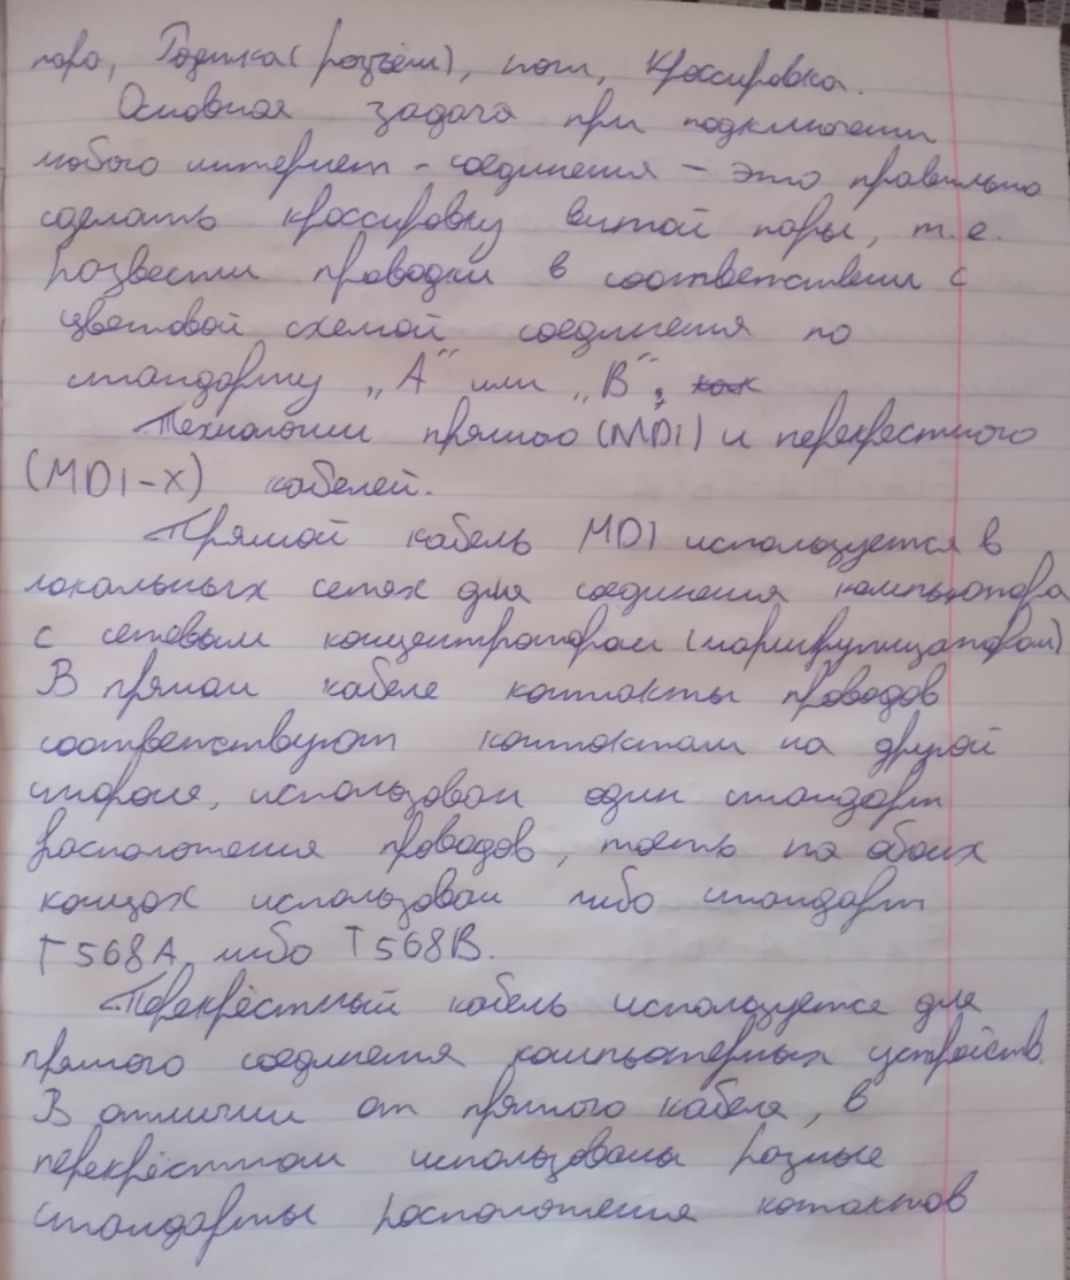 пара, Розетка (разъём), порт, Кроссировка.
Основная задача при подключении
любого интернет - соединения - это правильно
сделать кроссировку витой пары, т.е.
развести проводки в соответствии с
цветовой схемой соединения по
стандарту „A“ или „B“.
Технологии прямого (MDI) и перекрестного
(MDI-X) кабелей.
Прямой кабель MDI используется в
локальных сетях для соединения компьютора
с сетевым концентратором (маршрутизатором)
В прямом кабеле контакты проводов
соответствуют контактам на другой
стороне, использован один стандарт
расположения проводов, тоесть на обоих
концах использован либо стандарт
T568A, либо T568B.
Перекрёстный кабель используется для
прямого соединения компьютерных устройств.
В отличии от прямого кабеля, в
перекрёстном использованы разные
стандарты расположения котактов